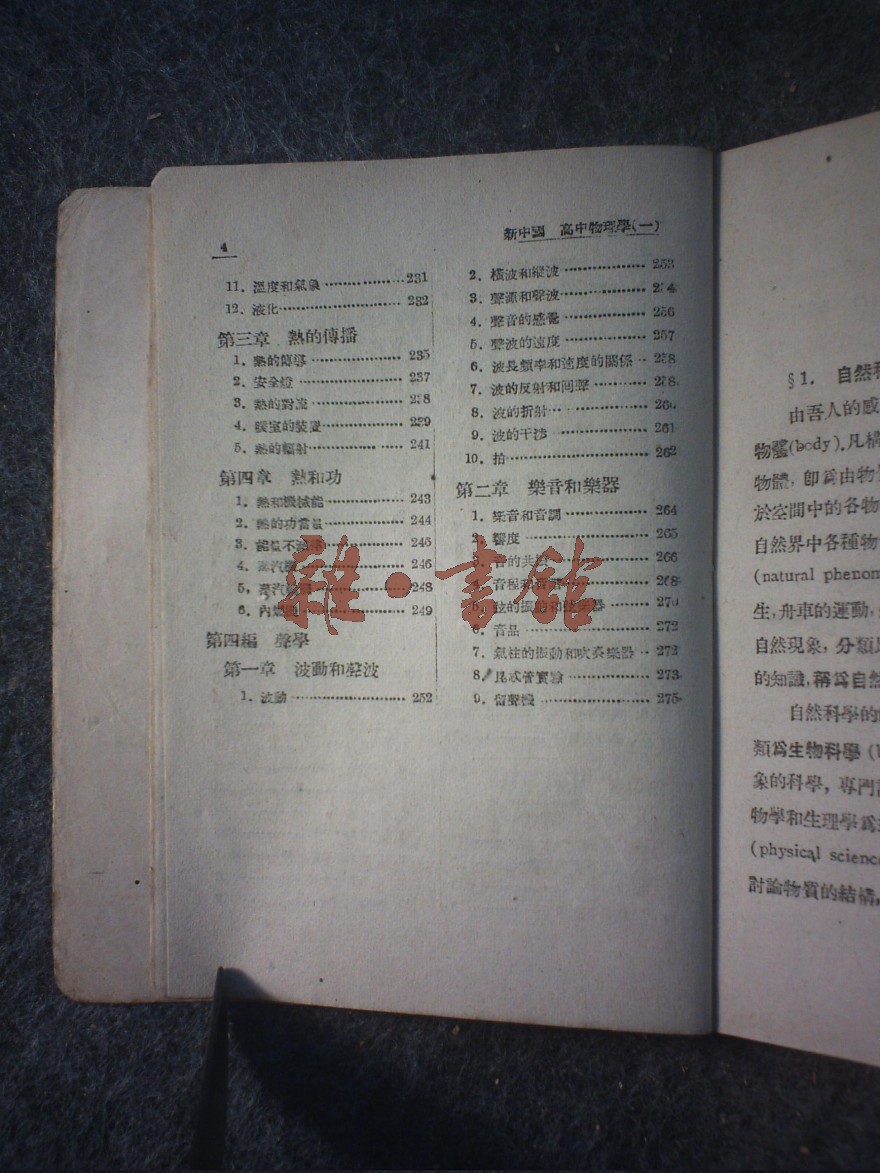 4
新中國 高中物理學(一)
11. 溫度和氣象 231
12. 液化 232
第三章 熱的傳播
1. 熱的傳導 235
2. 安全燈 237
3. 熱的對流 238
4. 暖室的裝置 239
5. 熱的輻射 241
第四章 熱和功
1. 熱和機械能 243
2. 熱的功當量 244
3. 能量不滅 245
4. 蒸汽機 246
5. 蒸汽 248
6. 內燃機 249
第四編 聲學
第一章 波動和聲波
1. 波動 252
2. 橫波和縱波 253
3. 聲源和聲波 254
4. 聲音的感覺 256
5. 聲波的速度 257
6. 波長頻率和速度的關係 258
7. 波的反射和回聲 258
8. 波的折射 260
9. 波的干涉 261
10. 拍 262
第二章 樂音和樂器
1. 樂音和音調 264
2. 響度 265
3. 音的共鳴 266
4. 音程和音 268
5. 弦的振動和弦樂器 270
6. 音品 272
7. 氣柱的振動和吹奏樂器 272
8. 昆忒管實驗 273
9. 留聲機 275
雜·書館
§1. 自然科
由吾人的感
物體(body).凡構
物體, 卽爲由物
於空間中的各物
自然界中各種物
(natural phenom
生,舟車的運動,
自然現象, 分類
的知識,稱爲自然
自然科學的
類爲生物科學 (
象的科學, 專門
物學和生理學爲
(physical science
討論物質的結構,